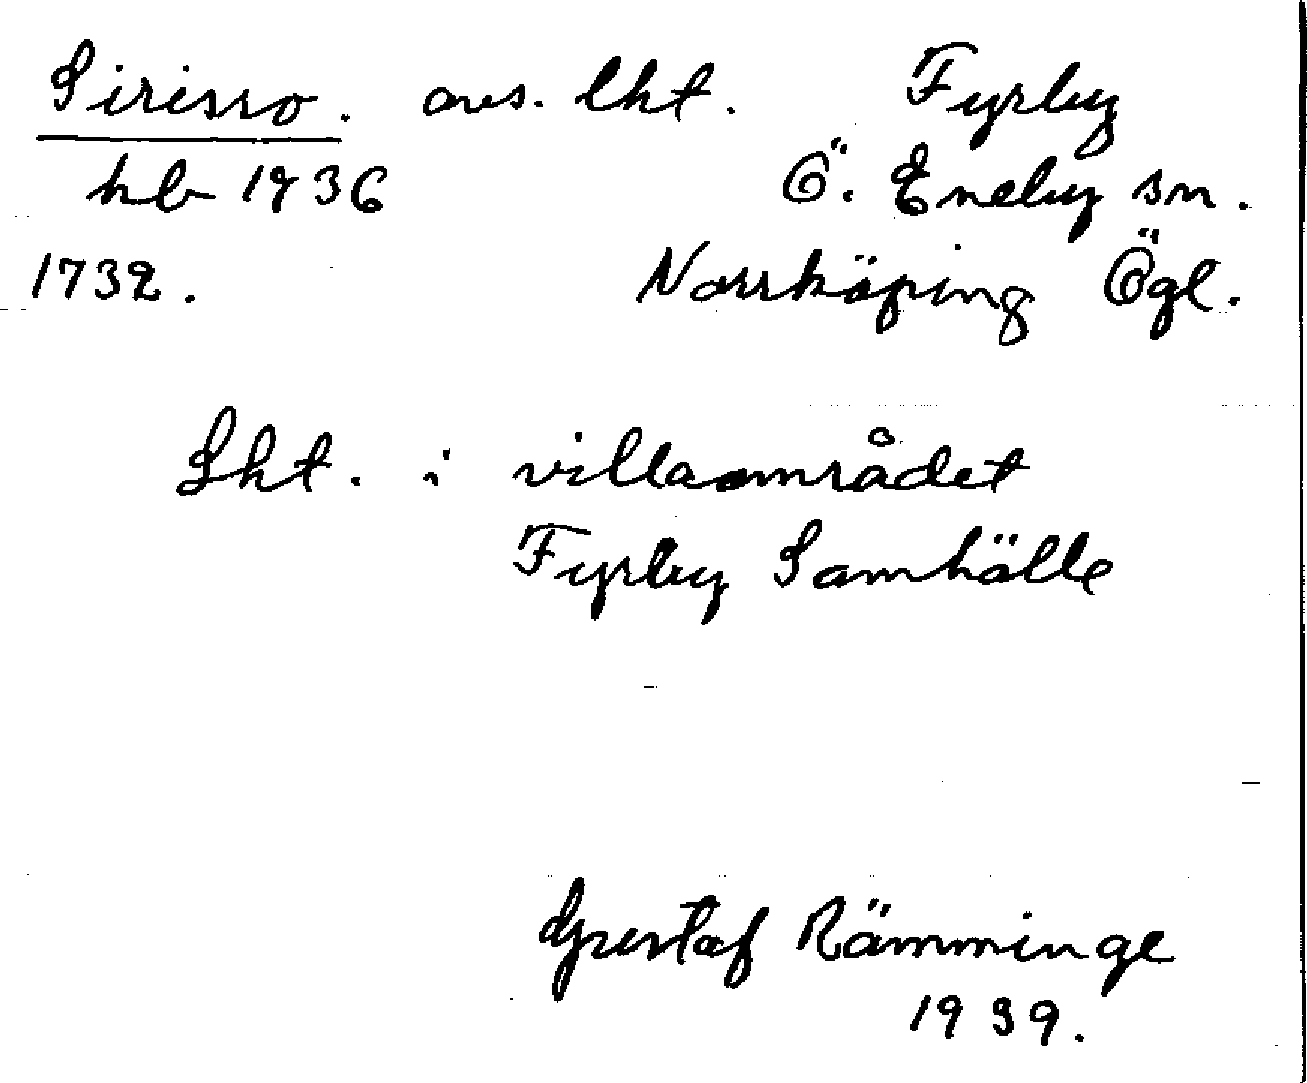 Sirisro. avs. lht. Fyrby
hb 1936 Ö. Eneby sn.
1732. Norrköping Ögl.
Lht. i villaområdet
Fyrby Samhälle
Gustaf Rämminge
1939.